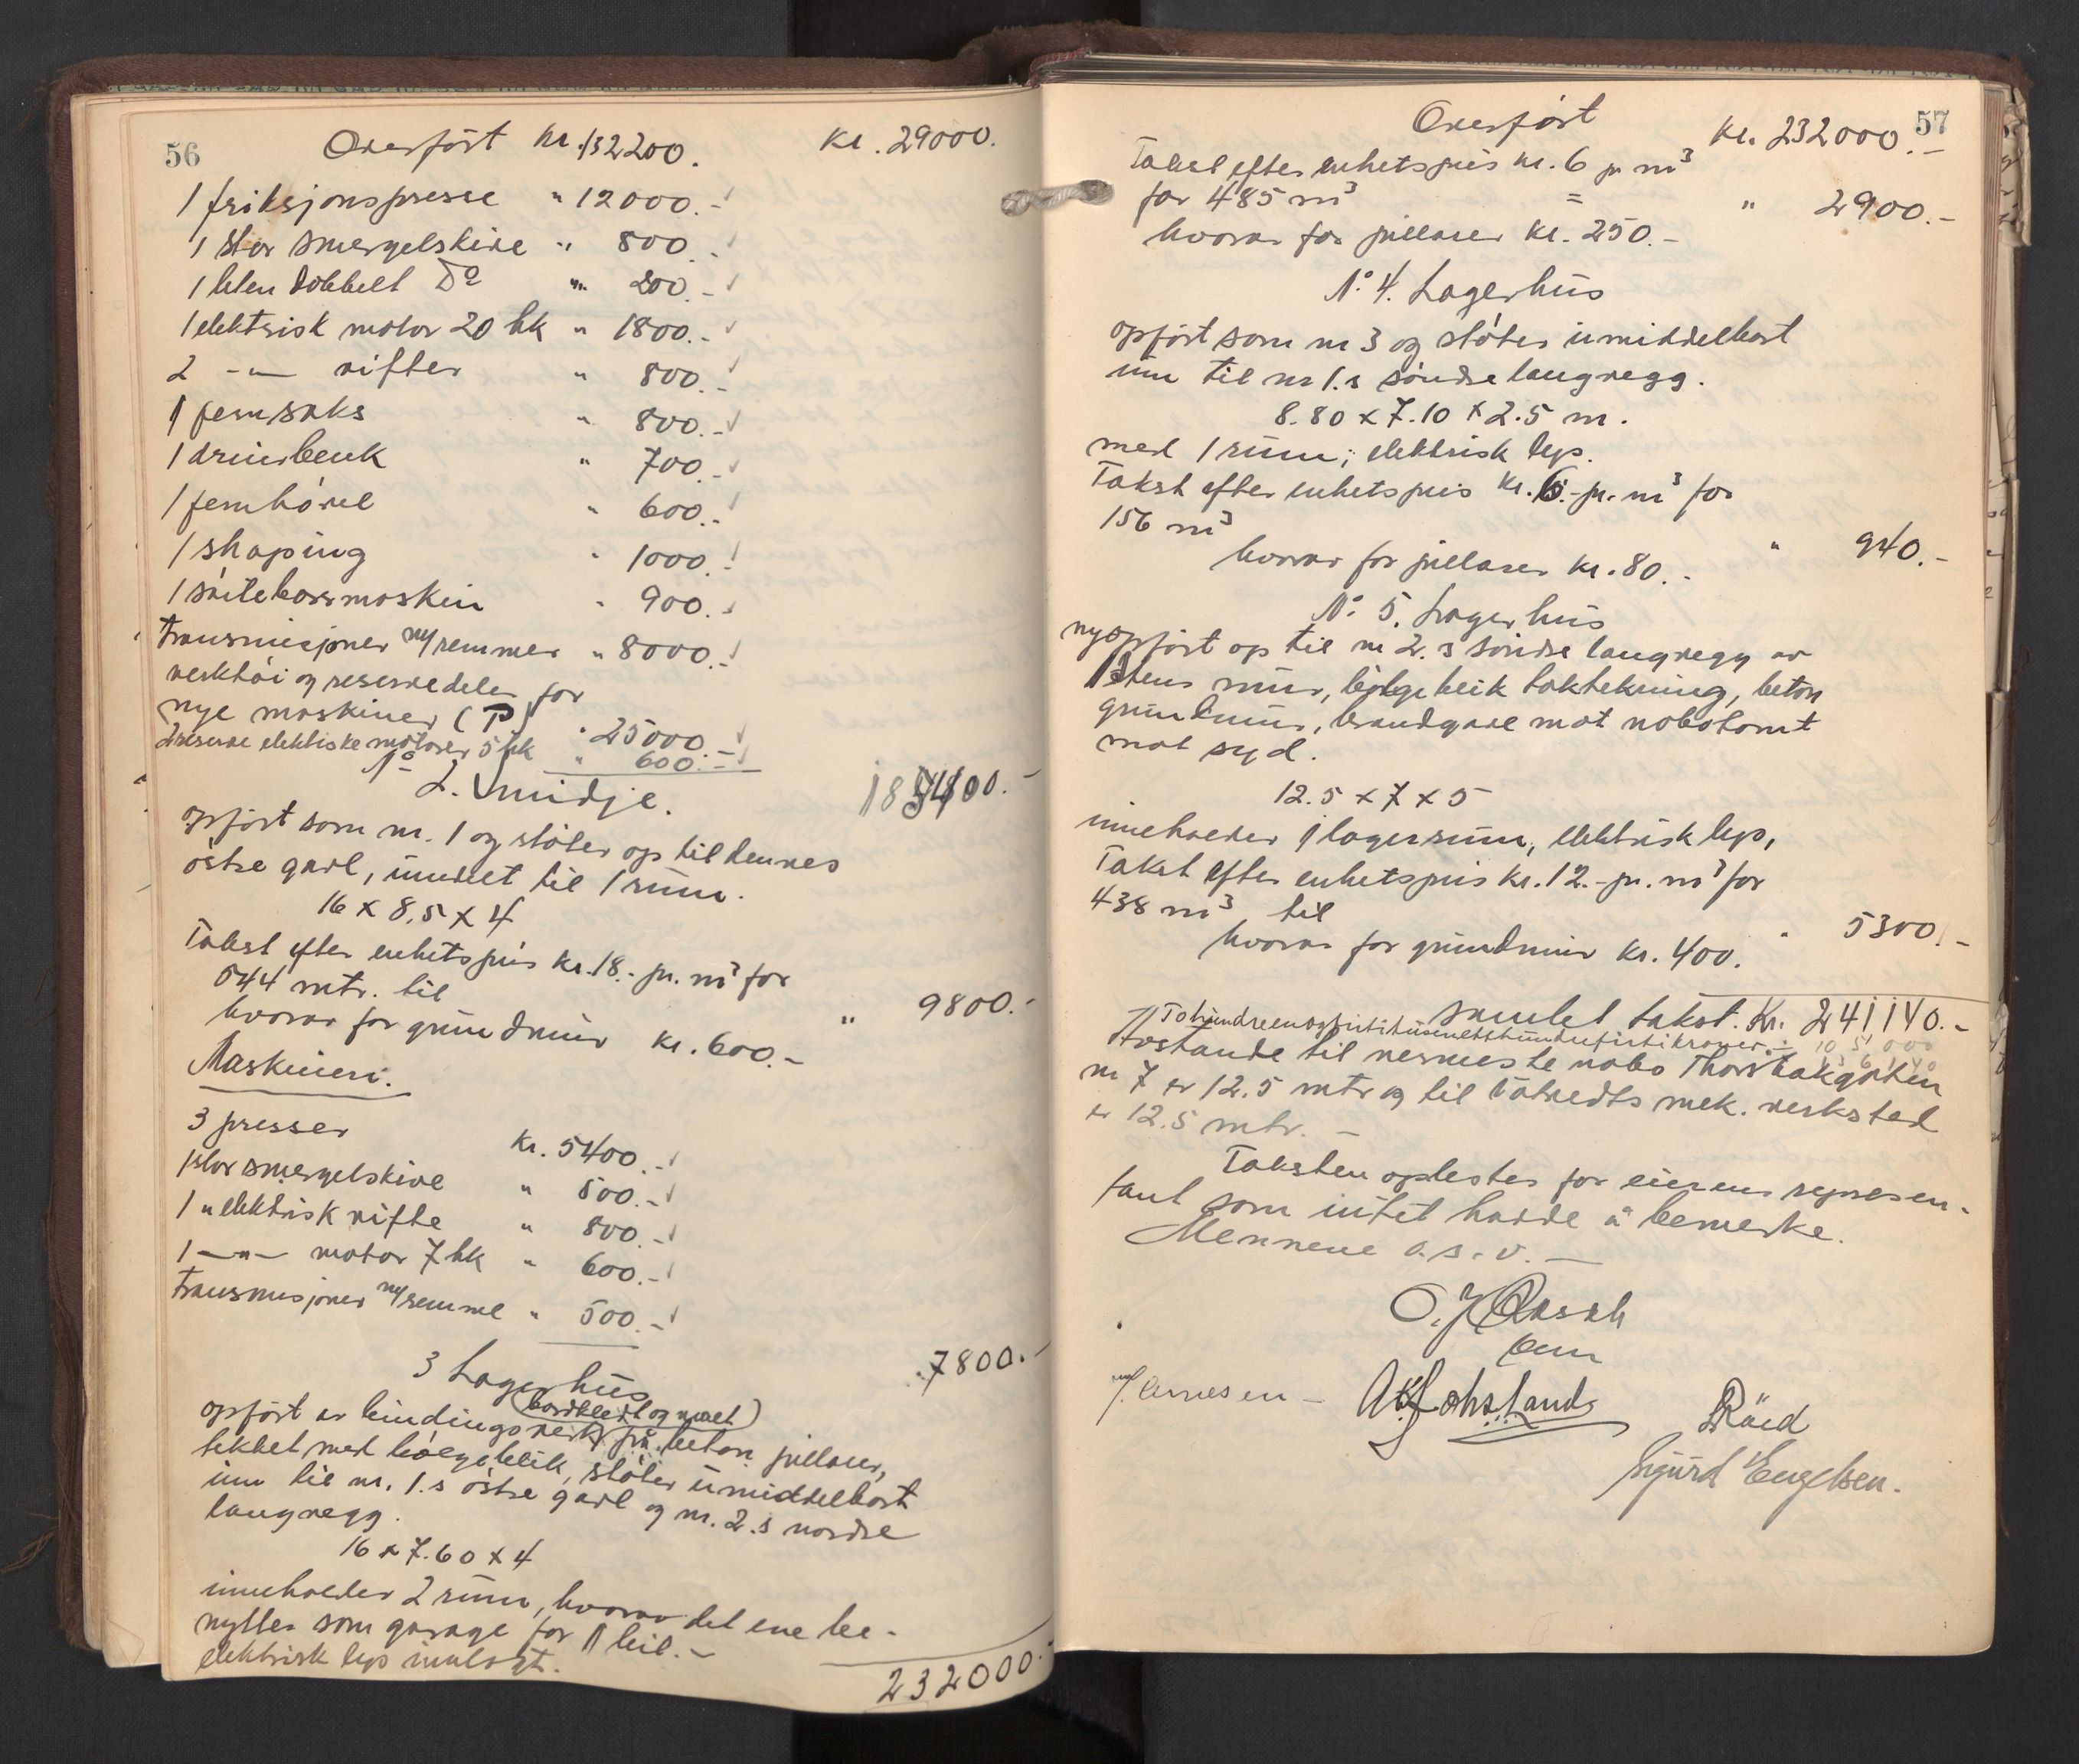 56
Overført kr. 132200. kr. 29000.
1 friksjonspresse " 12000.-
1 stor smergelskive " 800.-
1 liten dobbelt Do " 200.-
1 elektrisk motor 20 hk " 1800.-
2 -"- vifter " 800.-
1 jernsaks " 800.-
1 dreierbenk " 700.-
1 jernhøvel " 600.-
1 shaping " 1000.-
1 søileborrmaskin " 900.-
transmisjoner m/remmer " 8000.-
verktøi og reservedeler for
nye maskiner (P) " 25000.-
2 reserve elektriske motorer 5 hk " 600.-
185400.-
No 2. Smidje.
opført som nr. 1 og støter op til dennes
østre gavl, inndelt til 1 rum.
16 x 8,5 x 4
Takst efter enhetspris kr. 18.- pr. m3 for
544 mtr. til " 9800.-
hvorav for grundmur kr. 600.-
Maskineri.
3 presser kr. 5400.-
1 stor smergelskive " 500.-
1 " elektrisk vifte " 800.-
1 -"- motor 7 hk " 600.-
transmisjoner m/remme " 500.-
7800.-
3 Lagerhus
(bordkledt og malt)
opført av bindingsverk på beton pillarer,
tekket med bølgeblik, støter umiddelbart
inn til nr. 1.s østre gavl og nr. 2.s nordre
langvegg.
16 x 7.60 x 4
inneholder 2 rum, hvorav det ene be-
nyttes som garage for 1 bil.-
elektrisk lys innlagt.
232000.-
57
Overført kr. 232000.-
Takst efter enhetspris kr. 6 pr m3
for 485 m3 = " 2900.-
hvorav for pillarer kr. 250.-
No 4. Lagerhus
opført som nr 3 og støter umiddelbart
inn til nr 1.s søndre langvegg.
8.80 x 7.10 x 2.5 m.
med 1 rum; elektrisk lys.
Takst efter enhetspris kr. 6.- pr. m3 for
156 m3 " 940.-
hvorav for pillarer kr. 80.-
No 5. Lagerhus
nyopført op til nr 2.s søndre langvegg av
1 stens mur, bølgeblik taktekning, beton
grundmur, brandgavl mot nabotomt
mot syd.
12.5 x 7 x 5
inneholder 1 lagerrum, elektrisk lys,
Takst efter enhetspris kr. 12.- pr. m3 for
438 m3 til " 5300.-
hvorav for grundmur kr. 400.
samlet takst. Kr. 241140.-
Tohundreenogførtitusenetthundreførtikroner.-
Avstande til nermeste nabo Thorsbakgaten
nr 7 er 12.5 mtr og til Tatvedts mek. verksted
er 12.5 mtr. -
Taksten oplestes for eierens represen-
tant som intet hadde å bemerke.
Mennene o.s.v. -
Arnesen -
Sigurd Engelsen.